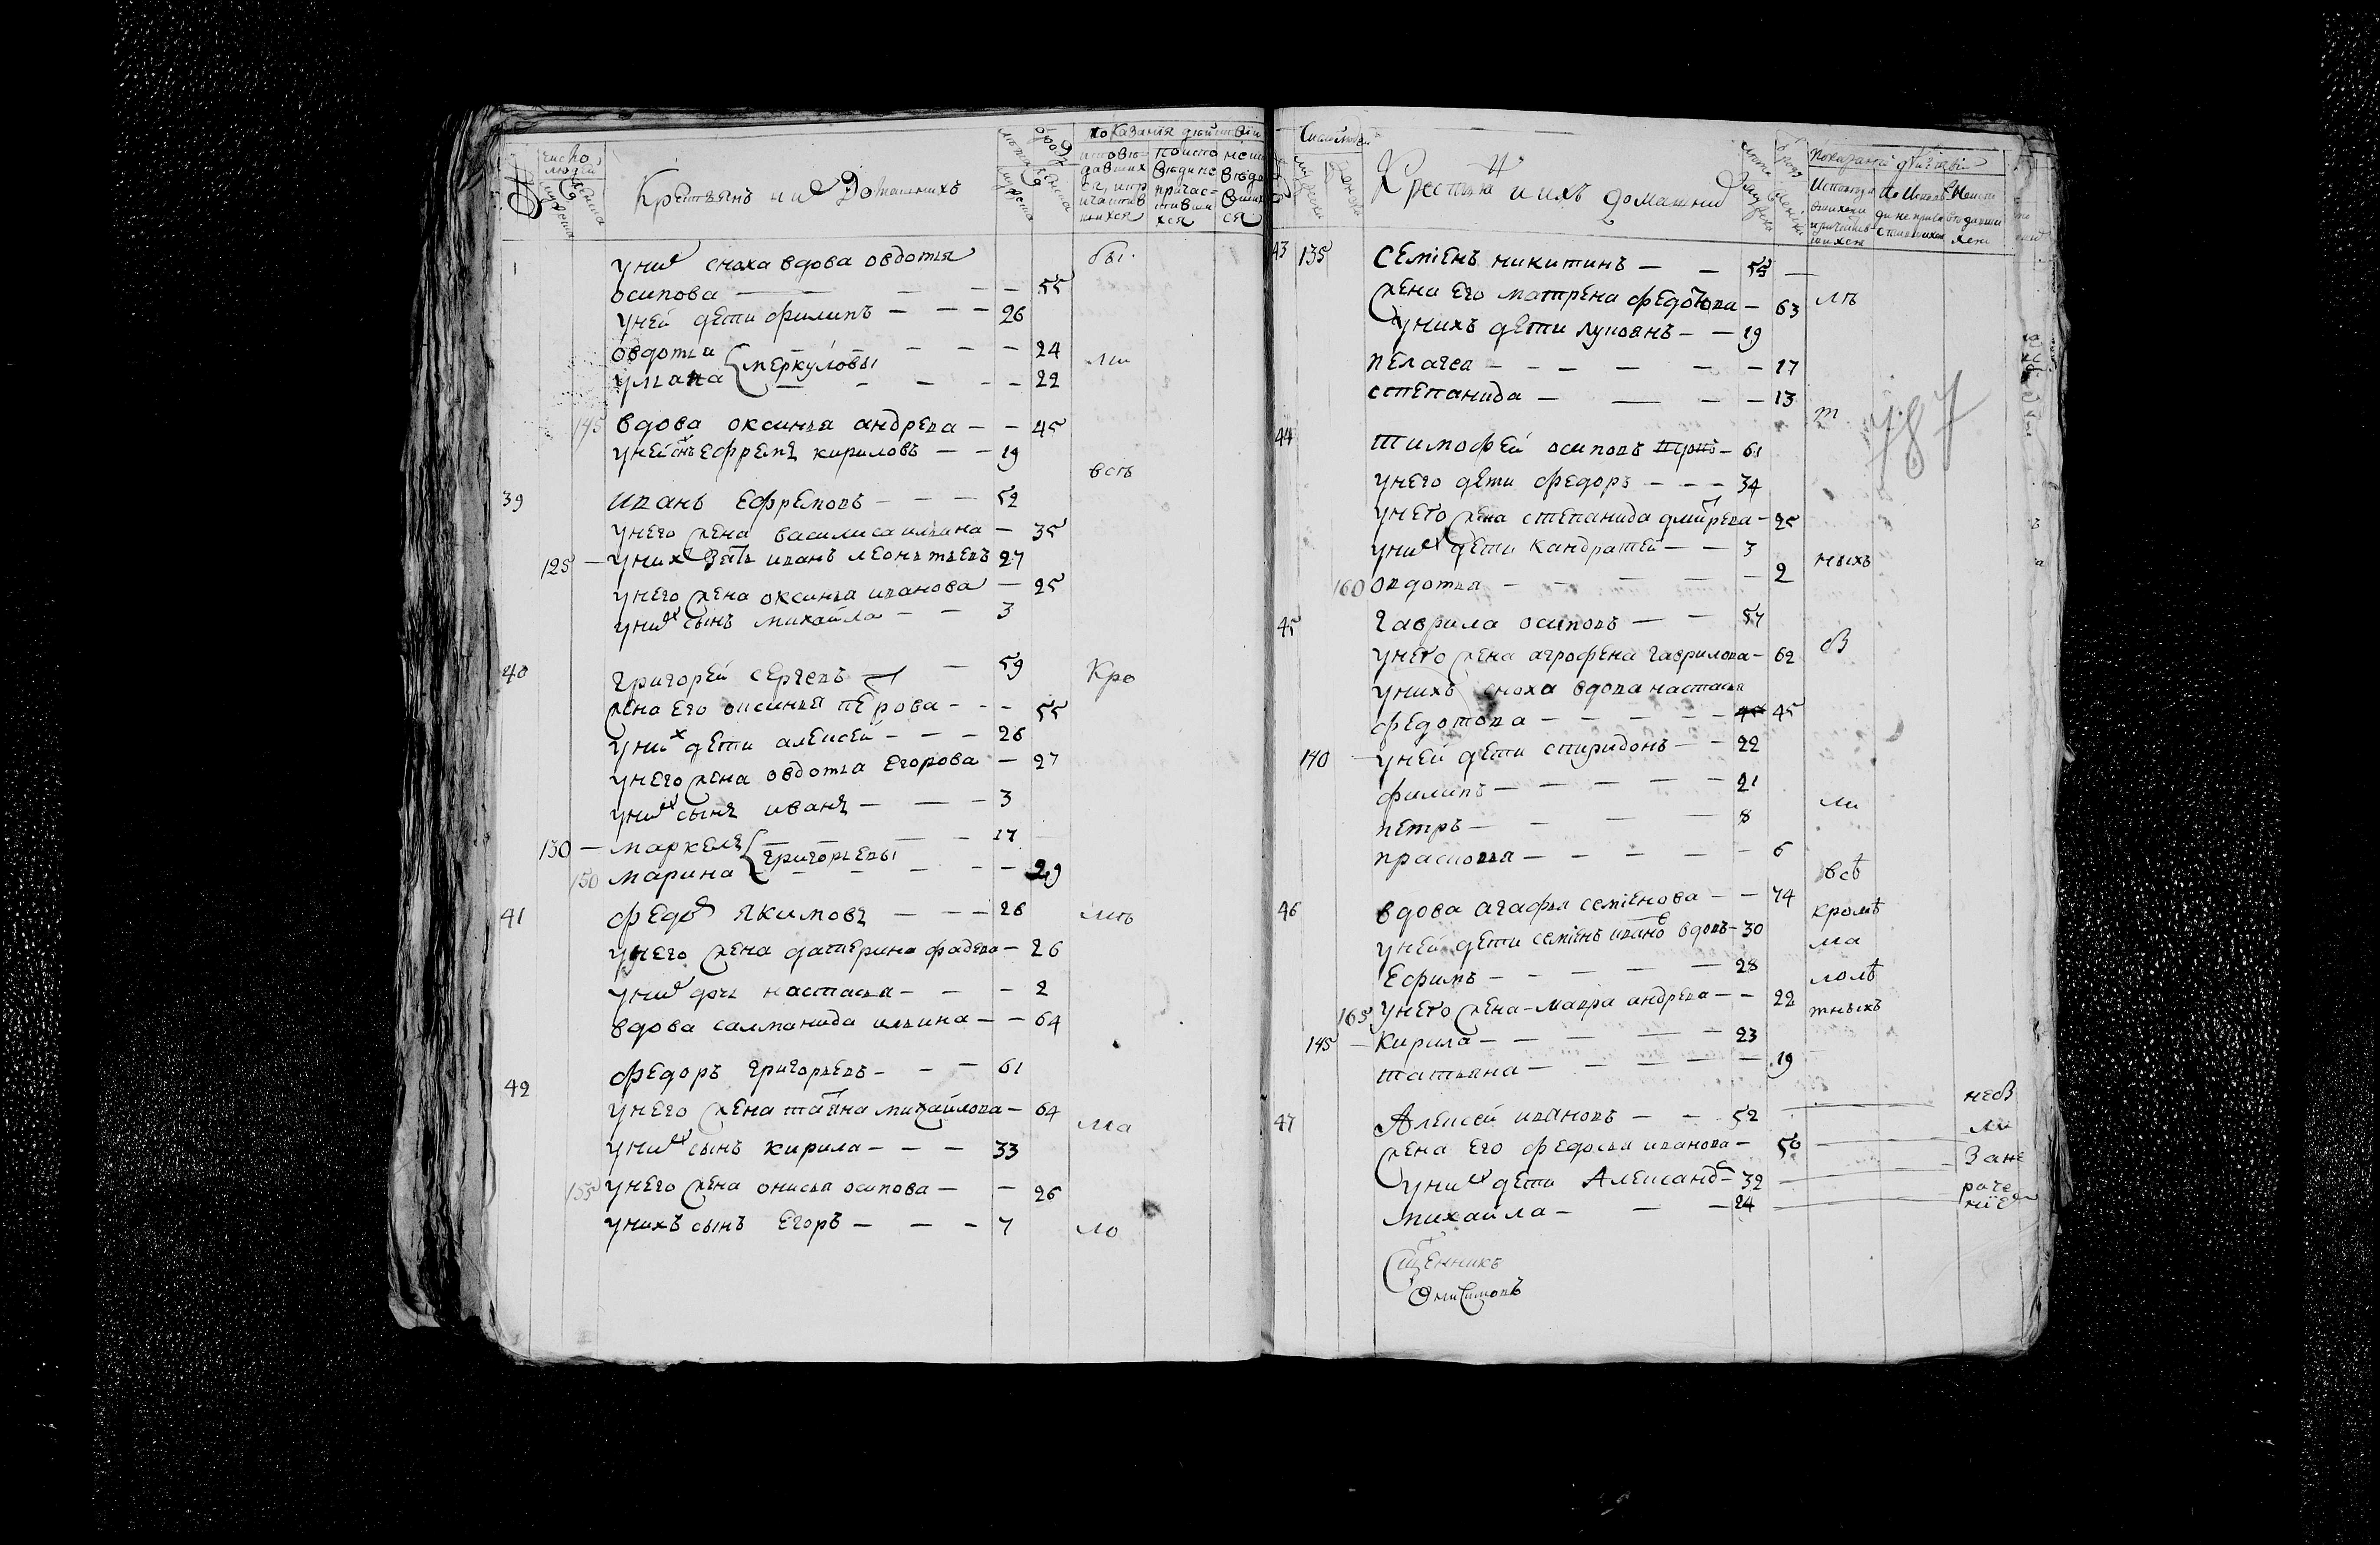 число людей
мужеска
женска
Крестьянъ и ихъ домашнихъ
лѣта от рождения
мужеска
женска
показания действии
исповѣдавшихся, и причастившихся
по исповѣди не причастившихся
не исповѣдавшихся
унихъ сноха вдова овдотья бы.
осипова — 55
уней дети филипъ — 26
овдотья — 24
меркуловы ли
ульяна — 22
145 вдова оксинья андрева — 45
уней снъ ефремъ кириловъ — 19
всѣ
39 иванъ ефремовъ — 52
унего жена василиса ильина — 35
125 — унихъ зять иванъ леонтьевъ 27
унего жена оксинья иванова — 25
унихъ сынъ михайла — 3
40 григорей сергеевъ — 59 Кро
жена его оксинья петрова — 55
унихъ дети алексей — 26
унего жена овдотья егорова — 27
унихъ сынъ иванъ — 3
130 — маркелъ — 17
григорьевы
150 марина — 29
41 федоръ якимовъ — 26 мѣ
унего жена катерина фадеева — 26
унихъ дочь настасья — 2
вдова саламанида ильина — 64
42 федоръ григорьевъ — 61
унего жена татьяна михайлова — 64 ма
унихъ сынъ кирила — 33
155 унего жена онисья осипова — 26
унихъ сынъ егоръ — 7 ло
Число людей
мужеска
женска
Крестьяне и ихъ домашнии
Показании действии
43 135 семиенъ никитинъ — 58 —
жена его матрена федотова — 63 лѣ
унихъ дети лукоянъ — 19
пелагея — 17
степанида — 13
т
787
44 тимофей осиповъ — 61
унего дети федоръ — 34
унего жена степанида дмитрева — 25
унихъ дети кандратей — 3 ныхъ
160 овдотья — 2
45 гаврила осиповъ — 57
унего жена агрофена гаврилова — 62
унихъ сноха вдова настасья
федотова — 45 45
140 — уней дети спиридонъ — 22
филипъ — 21 ли
петръ — 8
прасковья — 6
всѣ
46 вдова агафья семиенова — 74 кромѣ
уней дети семиенъ ивановъ вдовъ — 30 ма
ефимъ — 28 лолѣ
165 унего жена мавра андрева — 22 тныхъ
145 — кирила — 23
татьяна — 19
47 Алексей ивановъ — 52 небы
жена его федосья иванова — 50 ли
унихъ дети Александръ — 32 Зане
михайла — 24 раче
ниемъ
Священникъ
Онисимовъ